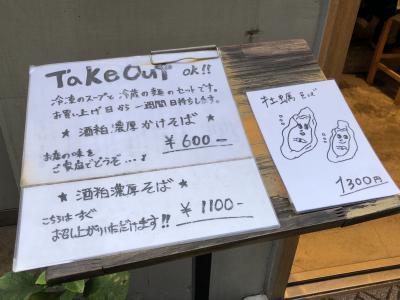 Take Out ok!!
冷凍のスープと冷蔵の麺のセットです。
お買い上げ日から一週間日持ちします。
★ 酒粕濃厚かけそば ★
¥600-
お店の味を
ご家庭でどうぞ...♪
★ 酒粕濃厚そば ★
¥1100-
こちらはすぐ
お召し上がりいただけます!!
牡蠣そば
1300円